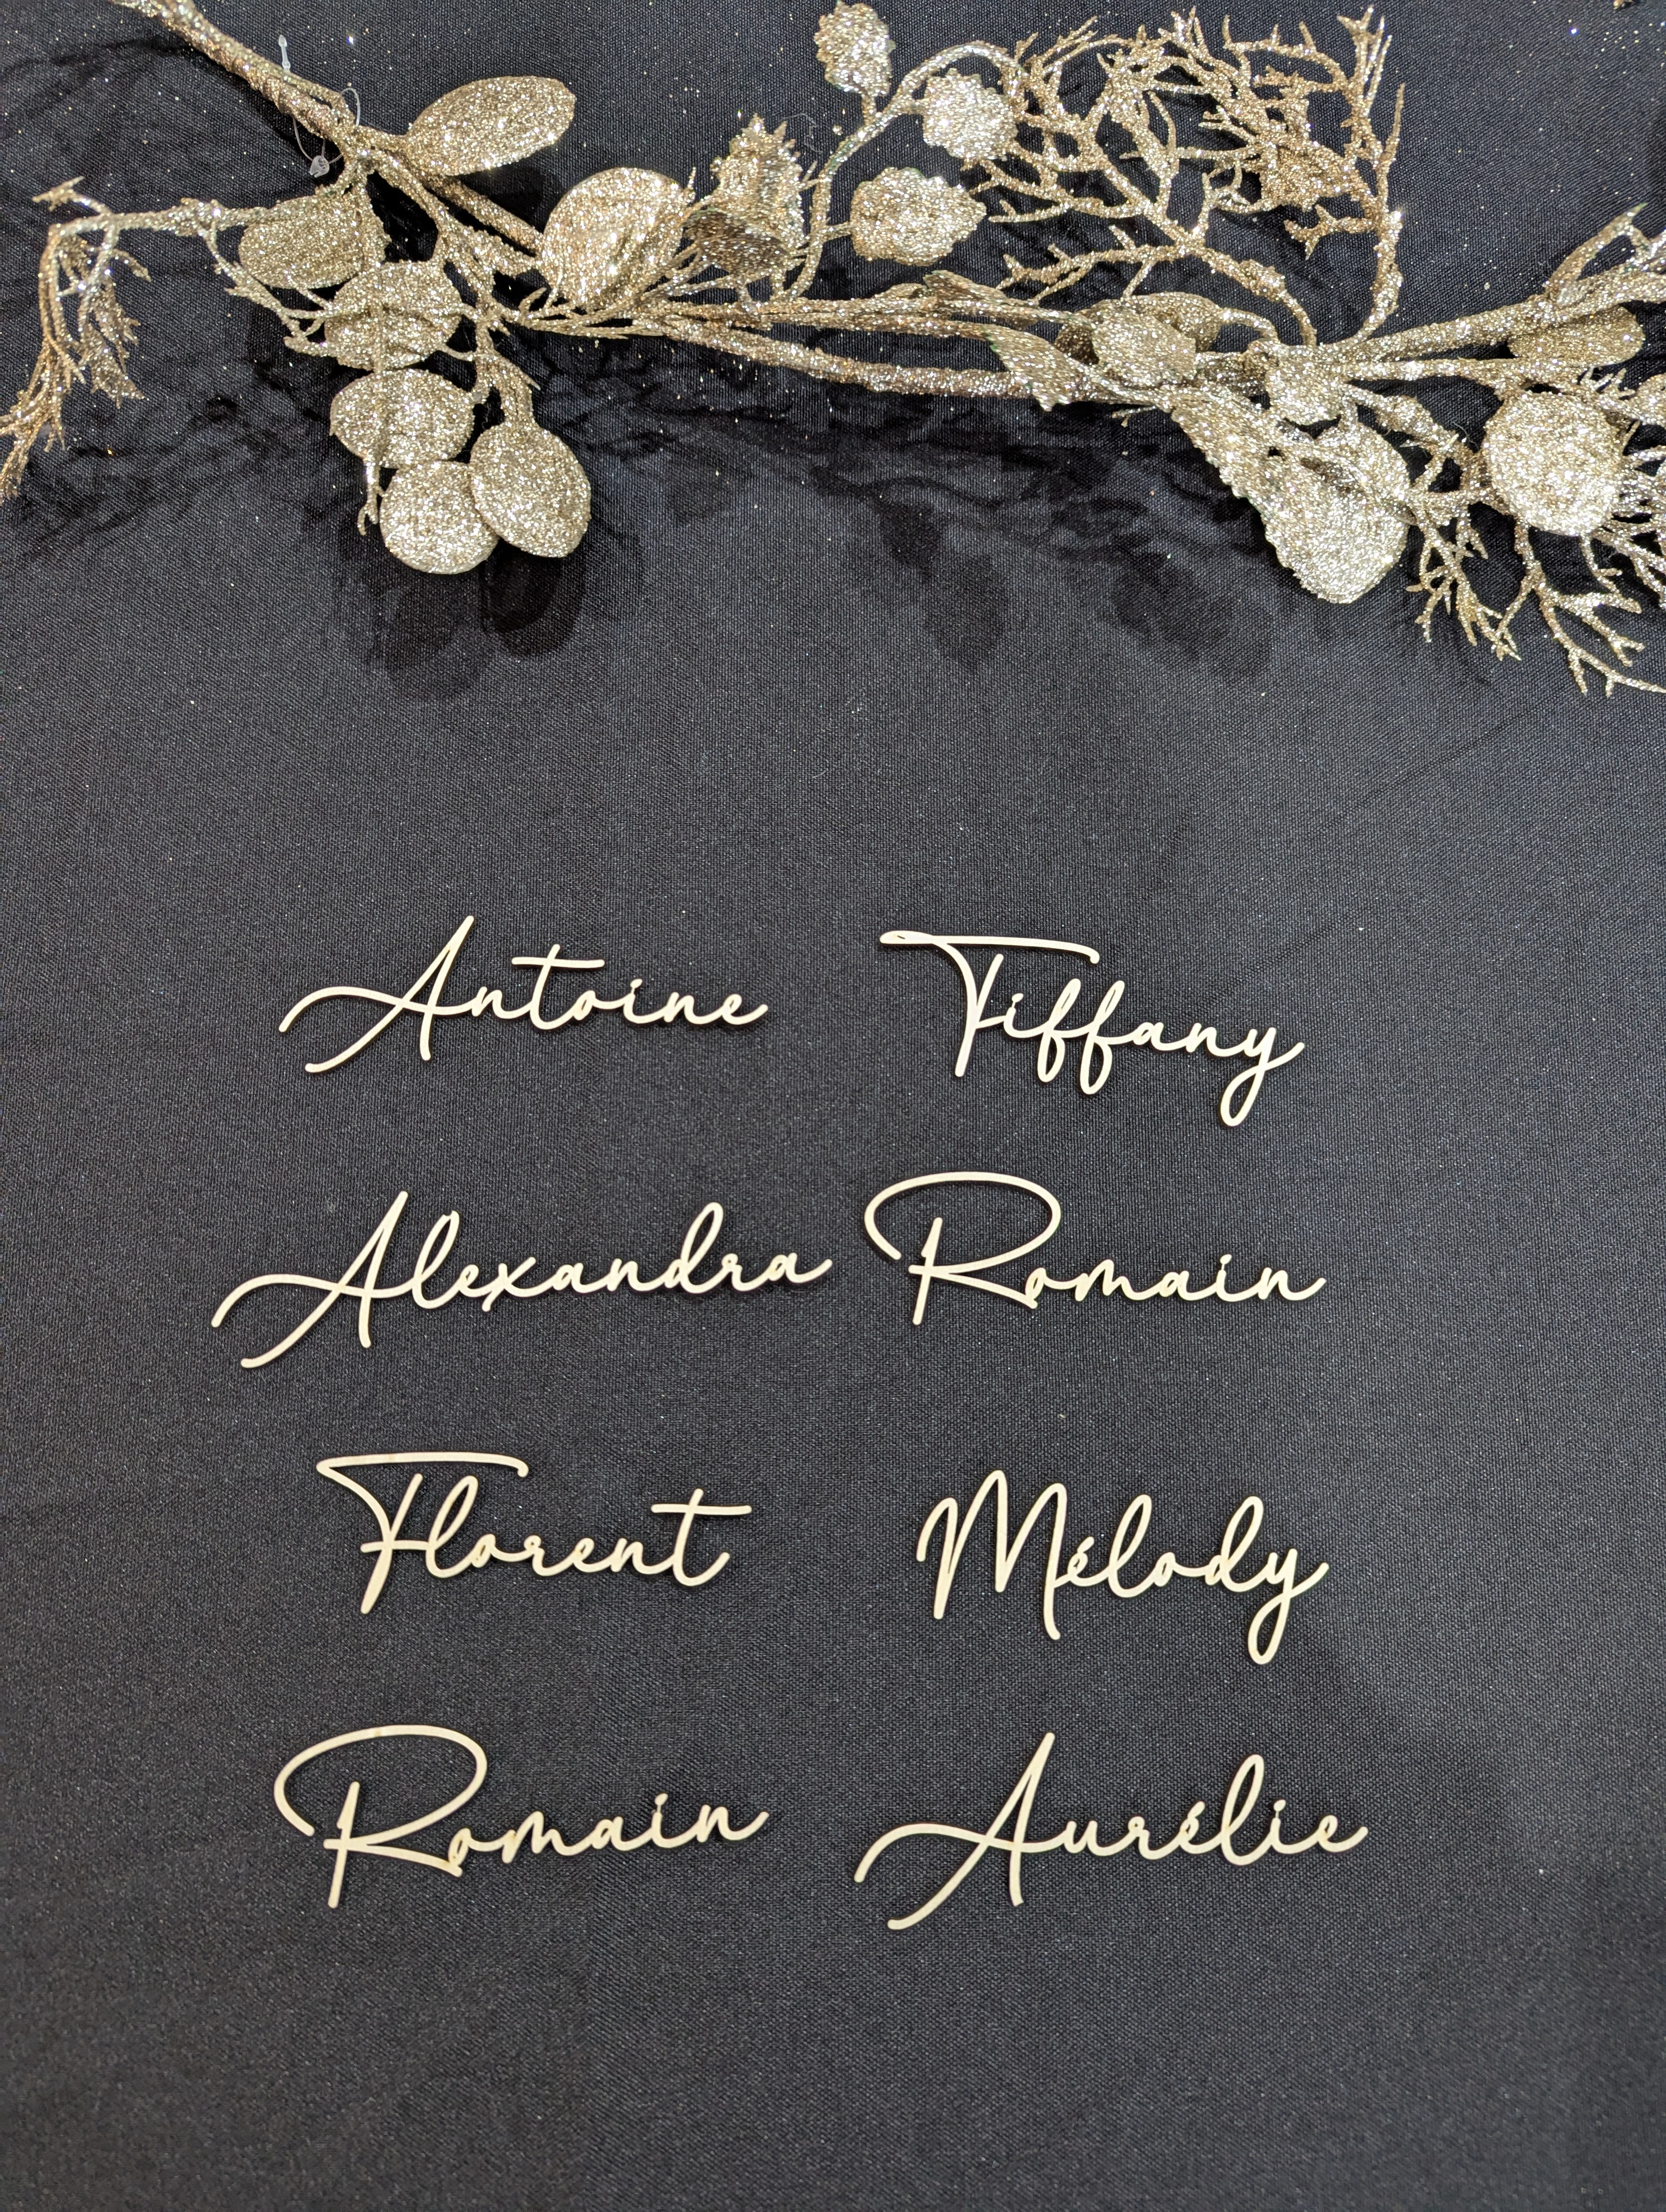 Antoine Tiffany
Alexandra Romain
Florent Mélody
Romain Aurélie